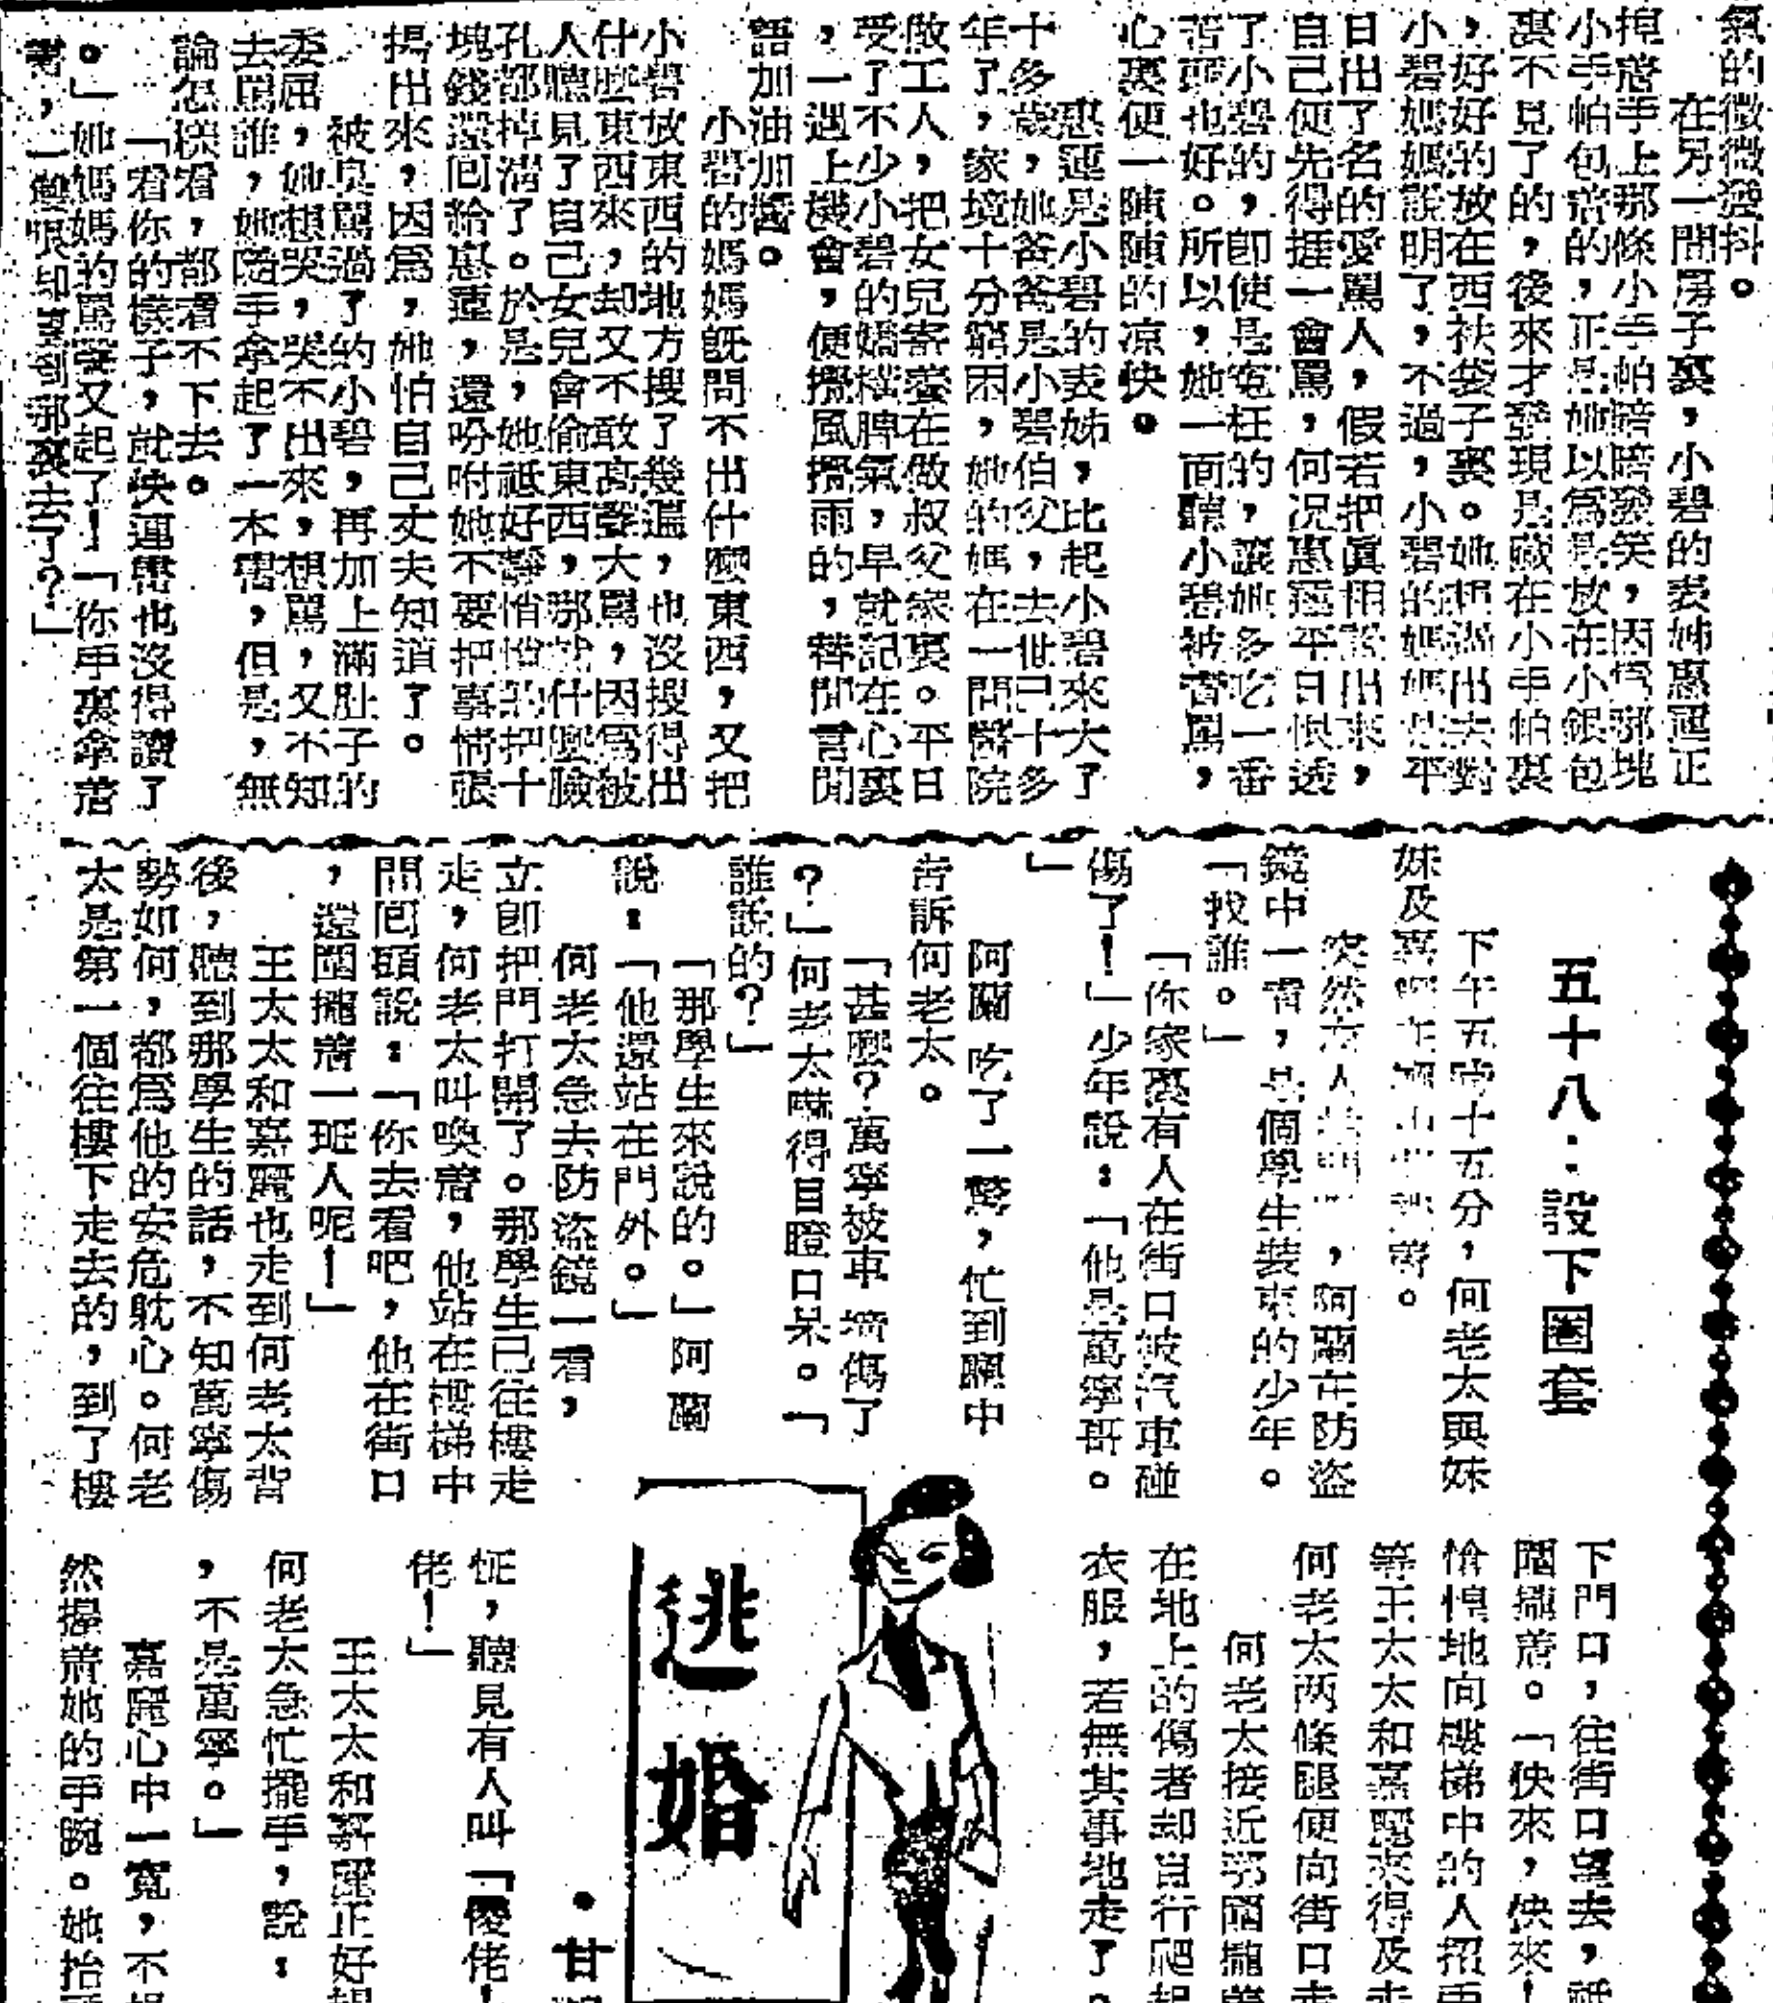 氣的微微發抖。
在另一間房子裏，小碧的表姊惠蓮正
掩着手上那條小手帕暗暗發笑，因爲那塊
小手帕包着的，正是她以爲是放在小銀包
裏不見了的，後來才發現是藏在小手帕裏
，好好的放在西袂袋子裏。她想過出去對
小碧媽媽說明了，不過，小碧的媽媽是平
日出了名的愛罵人，假若把眞相說出來，
自己便先得捱一會罵，何况惠蓮平日恨透
了小碧的，卽使是寃枉的，讓她多吃一番
苦頭也好。所以，她一面聽小碧被責罵，
心裏便一陣陣的凉快。
惠蓮是小碧的表姊，比起小碧來大了
十多歲，她爸爸是小碧伯父，去世已十多
年了，家境十分窮困，她的媽在一間醫院
做工人，把女兒寄養在做叔父家裏。平日
受了不少小碧的嬌橫脾氣，早就記在心裏
，一遇上機會，便攪風攪雨的，替閒言閒
語加油加醬。
小碧的媽媽旣問不出什麼東西，又把
小碧放東西的地方搜了幾遍，也沒搜得出
什麼東西來，却又不敢高聲大罵，因爲被
人聽見了自己女兒會偷東西，那就什麼臉
孔都掉淸了。於是，她祗好靜悄悄的把十
塊錢還囘給惠蓮，還吩咐她不要把事情張
揚出來，因爲，她怕自己丈夫知道了。
被臭罵過了的小碧，再加上滿肚子的
委屈，她想哭，哭不出來，想罵，又不知
去罵誰，她隨手拿起了一本書，但是，無
論怎樣看，都看不下去。
「看你的樣子，就快連書也沒得讀了
。」她媽媽的罵聲又起了！「你手裏拿着
書，一雙眼却望到那裏去了？」
五十八・設下圈套
下午五時十五分，何老太與妹
妹及嘉麗在
突然有人，阿蘭在防盜
鏡中一看，是個學生裝束的少年。
「找誰。」
「你家裏有人在街口被汽車碰
傷了！」少年說：「他是萬寧哥。
」
阿蘭吃了一驚，忙到廳中
告訴何老太。
「甚麼？萬寧被車撞傷了
？」何老太嚇得目瞪口呆。「
誰說的？」
「那學生來說的。」阿蘭
說：「他還站在門外。」
何老太急去防盜鏡一看，
立卽把門打開了。那學生已往樓走
走，何老太叫喚着，他站在樓梯中
間囘頭說：「你去看吧，他在街口
，還圍攏着一班人呢！」
王太太和嘉麗也走到何老太背
後，聽到那學生的話，不知萬寧傷
勢如何，都爲他的安危躭心。何老
太是第一個往樓下走去的，到了樓
下門口，往街口望去，祗
圍攏着。「快來，快來！
愴惶地向樓梯中的人招手
等王太太和嘉麗來得及走
何老太两條腿便向街口走
何老太接近那圍攏着
在地上的傷者却自行爬起
衣服，若無其事地走了。
逃婚
・甘
怔，聽見有人叫「傻佬！
佬！」
王太太和嘉麗正好趕
何老太急忙擺手，說：
，不是萬寧。」
嘉麗心中一寬，不
然握着她的手腕。她抬